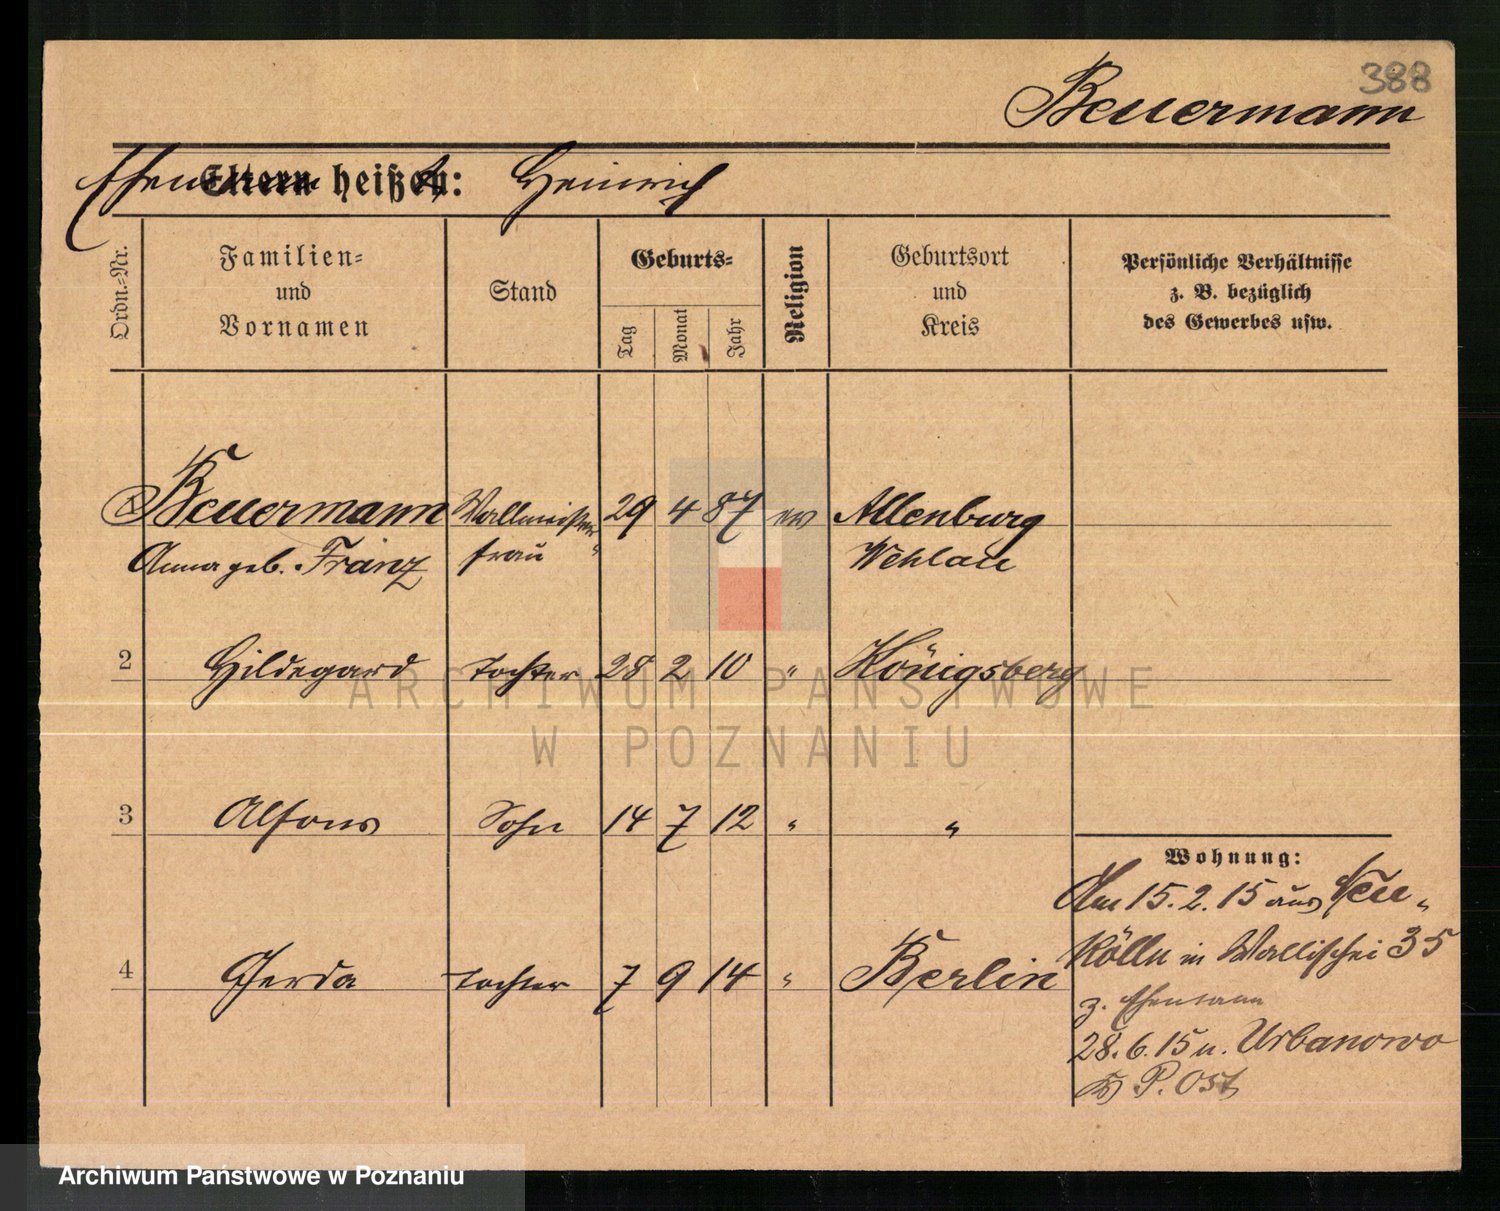 388
Beuermann
Ehemann heißt: Heinrich
Ordn.-Nr.
Familien-
und
Vornamen
Stand
Geburts-
Tag
Monat
Jahr
Religion
Geburtsort
und
Kreis
Persönliche Verhältnisse
z. B. bezüglich
des Gewerbes usw.
1 Beuermann Wallmeister- 29 4 87 ev Allenburg
Anna geb. Franz frau Wehlau
2 Hildegard Tochter 28 2 10 " Königsberg
3 Alfons Sohn 14 7 12 " "
Wohnung:
Am 15. 2. 15 aus Neu-
Kölln in Wallischei 35
4 Gerda Tochter 7 9 14 " Berlin
z. Ehemann
28. 6. 15 n. Urbanowo
Kr P. Ost
ARCHIWUM PAŃSTWOWE
W POZNANIU
Archiwum Państwowe w Poznaniu